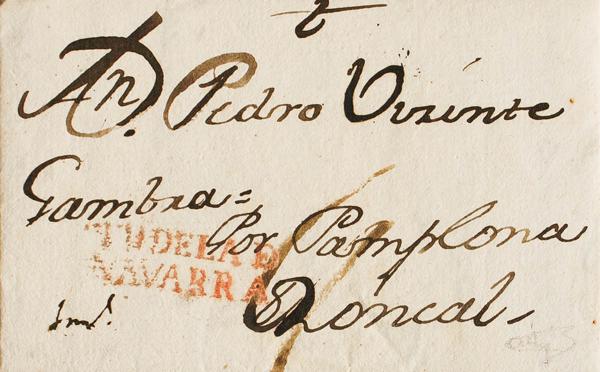 A D.ⁿ Pedro Vizente
Gambra=
Por Pamplona
TUDELA D
NAVARRA
Roncal